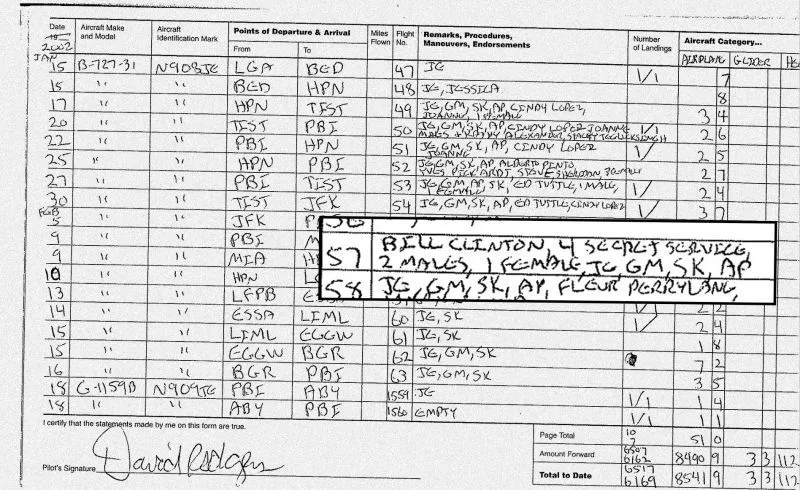 Date Aircraft Make and Model Aircraft Identification Mark Points of Departure & Arrival From To Miles Flown Flight No. Remarks, Procedures, Maneuvers, Endorsements Number of Landings Aircraft Category...
2002 AIRPLANE GLIDER HE
JAN
15 B-727-31 N908JE LGA BED 47 JE 1/1 7
15 " " BED HPN 48 JE, JESSICA 8
17 " " HPN TIST 49 JE, GM, SK, AP, CINDY LOPEZ, 3 4
JOANNE, 1 FEMALE
20 " " TIST PBI 50 JE, GM, SK, AP, CINDY LOPEZ JOANNE 1/1 2 6
22 " " PBI HPN 51 JE, GM, SK, AP, CINDY LOPEZ 1/ 2 5
JOANNE
25 " HPN PBI 52 JE, GM, SK, AP, ALBERTO PINTO, 2 7
27 " " PBI TIST 53 JE, GM, AP, SK, ED TUTTLE, 1 MALE, 1/ 2 4
1 FEMALE
30 " " TIST JFK 54 JE, GM, SK, AP, ED TUTTLE, CINDY LOPEZ 1/ 3 7
FEB
5 " " JFK P
9 " " PBI M
9 " " MIA H
57 BILL CLINTON, 4 SECRET SERVICE,
2 MALES, 1 FEMALE, JE, GM, SK, AP
10 " " HPN
58 JE, GM, SK, AP, FLEUR PERRYLANG,
13 " " LFPB 2 2
14 " " ESSA LIML 60 JE, SK 1/ 2 4
15 " " LIML EGGW 61 JE, SK 1 8
15 " " EGGW BGR 62 JE, GM, SK 7 2
16 " " BGR PBI 63 JE, GM, SK 3 5
18 G-1159B N909JE PBI ABY 1559 JE 1/1 1 4
18 " " ABY PBI 1560 EMPTY 1/1 1 1
I certify that the statements made by me on this form are true.
Pilot's Signature David Rodgers
Page Total 10 7 51 0
Amount Forward 6507 6162 8490 9 3 3 112
Total to Date 6517 6169 8541 9 3 3 112